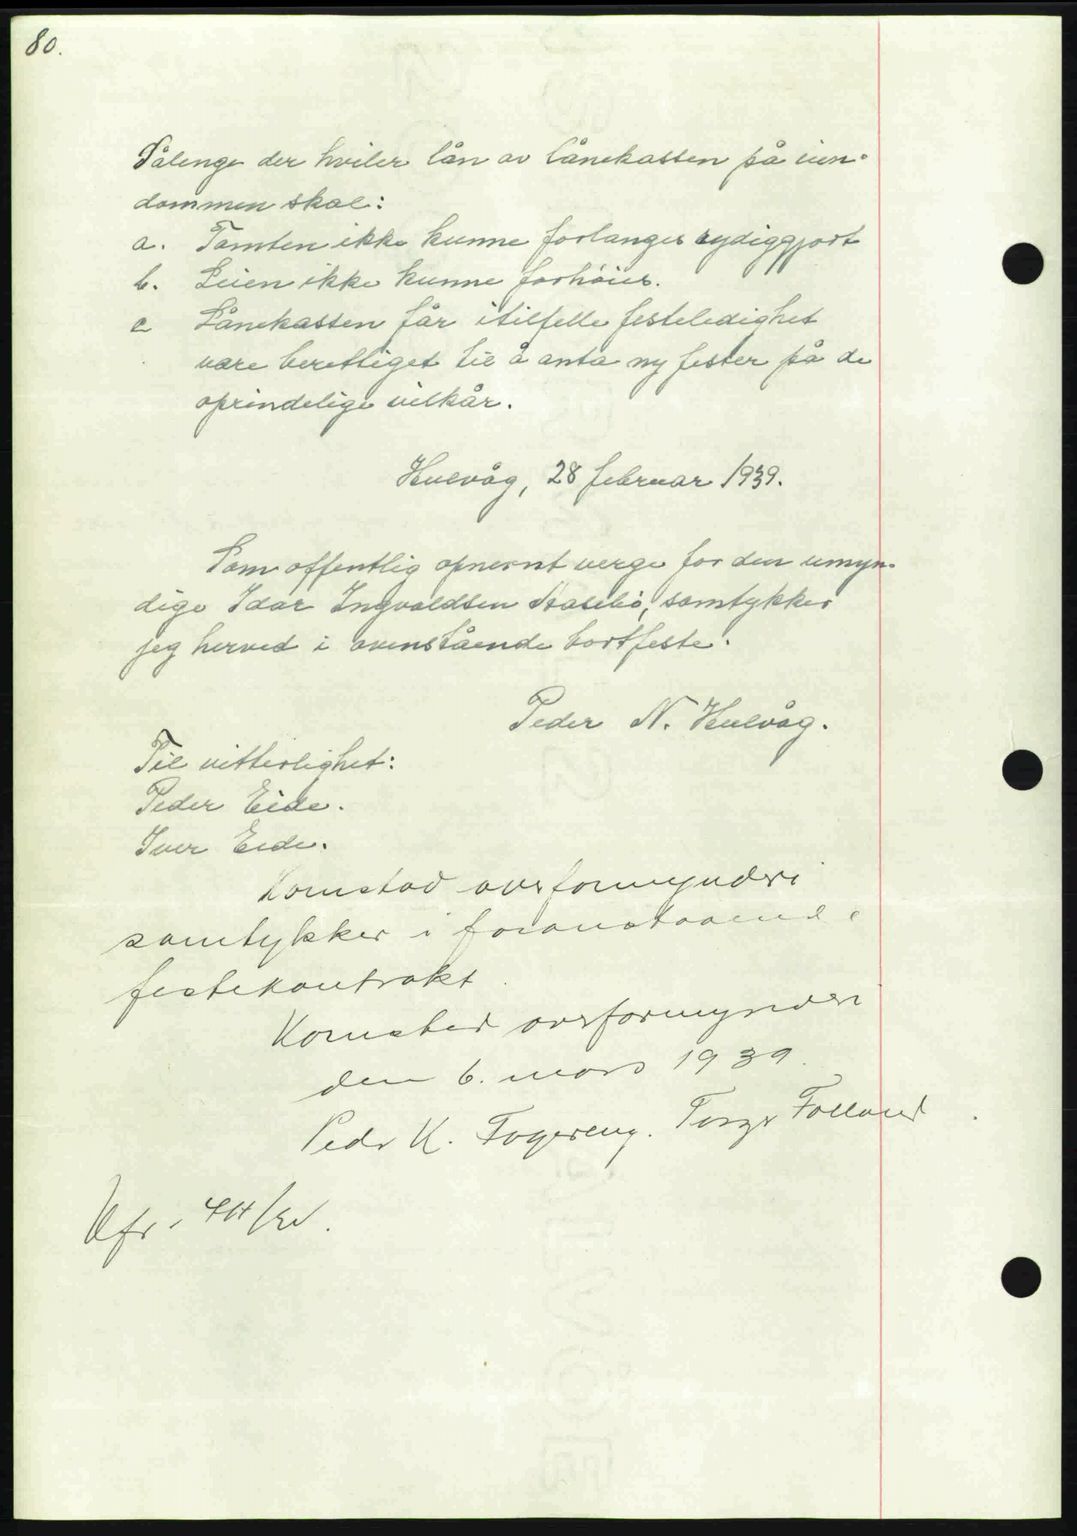 80.
Sålenge der hviler lån av lånekassen på eien-
dommen skal:
a. Tomten ikke kunne forlanges rydiggjort
b. Leien ikke kunne forhöies.
c Lånekassen får i tilfelle festeledighet
være berettiget til å anta ny fester på de
oprindelige vilkår.
Hulvåg, 28 februar 1939.
Som offentlig opnevnt verge for den umyn-
dige Idar Ingvaldsen samtykker
jeg herved i ovenstående bortfeste.
Peder N. Hulvåg.
Til vitterlighet:
Peder Eide.
Iver Eide.
Kornstad overformynderi
samtykker i foranstaaende
festekontrakt.
Kornstad overformynderi
den 6. mars 1939.
Peder K. Fogereng. Torger Folland